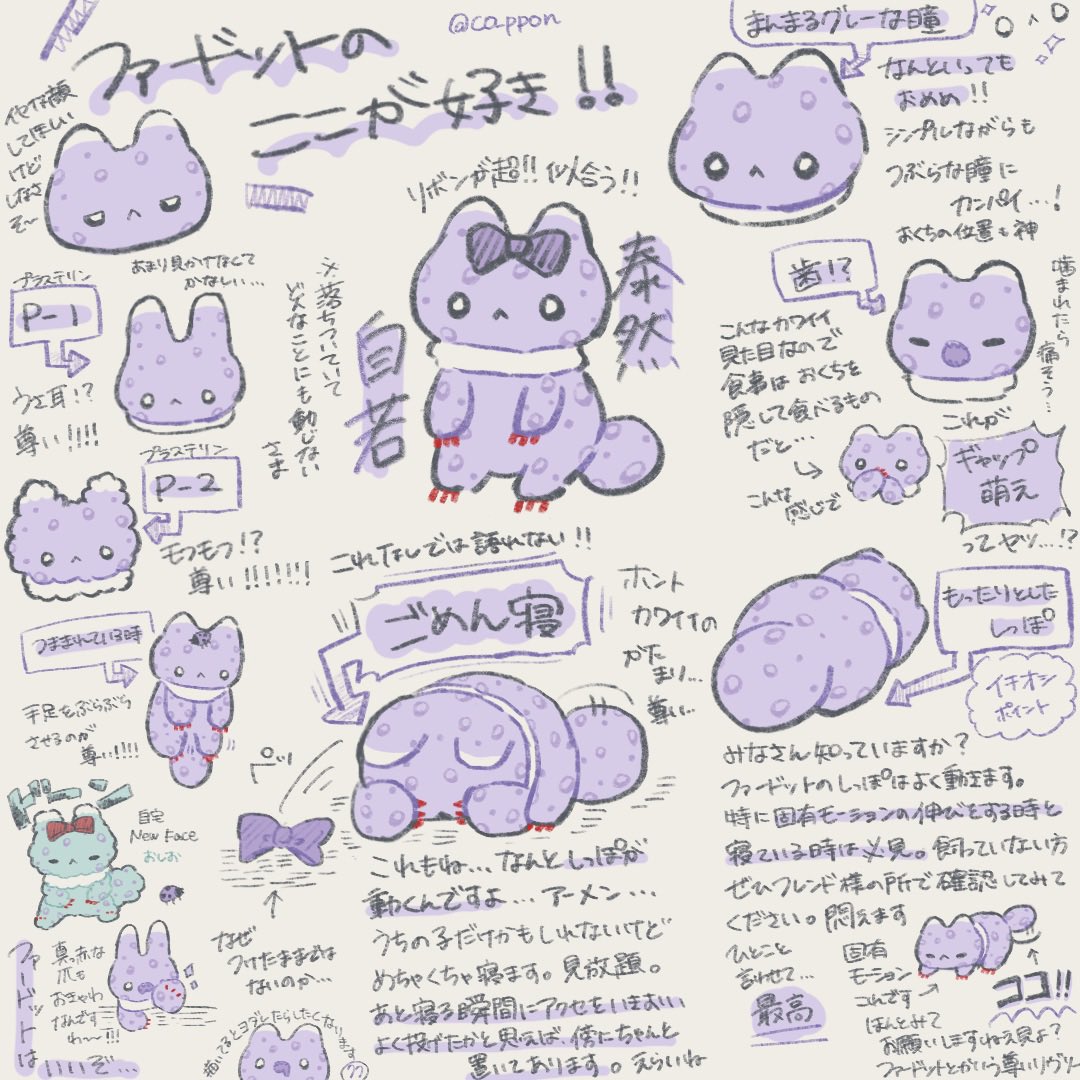 @cappon
ファードットの
ここが好き!!
イヤな顔
してほしい
けど
しなさ
そ〜
あまり見かけなくて
かなしい…
プラステリン
P-1
うさ耳!?
尊い!!!!
プラステリン
P-2
モフモフ!?
尊い!!!!!!!
つままれている時
手足をぶらぶら
させるのが
尊い!!!!
自宅
New Face
おしお
ファードットは
いいぞ…
真っ赤な
爪も
おきゃわ
なんです
わ〜!!!
リボンが超!!似合う!!
泰然
自若
※落ちついていて
どんなことにも動じない
さま
これなしでは語れない!!
ごめん寝
ホント
カワイイの
かた
まり…
尊い…
ピッ
なぜ
つけたままでは
ないのか…
描いてるとヨダとたらしたくなります
これもね…なんとしっぽが
動くんですよ…アーメン…
うちの子だけかもしれないけど
めちゃくちゃ寝ます。見放題。
あと寝る瞬間にアクセをいきおい
よく投げたかと思えば、傍にちゃんと
置いてあります。えらいね
まんまるグレーな瞳
なんといっても
おめめ!!
シンプルながらも
つぶらな瞳に
カンパイ…!
おくちの位置も神
歯!?
噛まれたら
痛そう…
こんなカワイイ
見た目なので
食事はおくちを
隠して食べるもの
だと…
こんな
感じで
これが
ギャップ
萌え
ってヤツ…!?
もったりとした
しっぽ
イチオシ
ポイント
みなさん知っていますか?
ファードットのしっぽはよく動きます。
特に固有モーションの伸びをする時と
寝ている時は必見。飼っていない方
ぜひフレンド様の所で確認してみて
ください。悶えます
ひとこと
言わせて…
最高
固有
モーション
コレです
ココ!!
ほんとみて
お願いしますねえ見よ?
ファードットとかいう尊いリヴリー